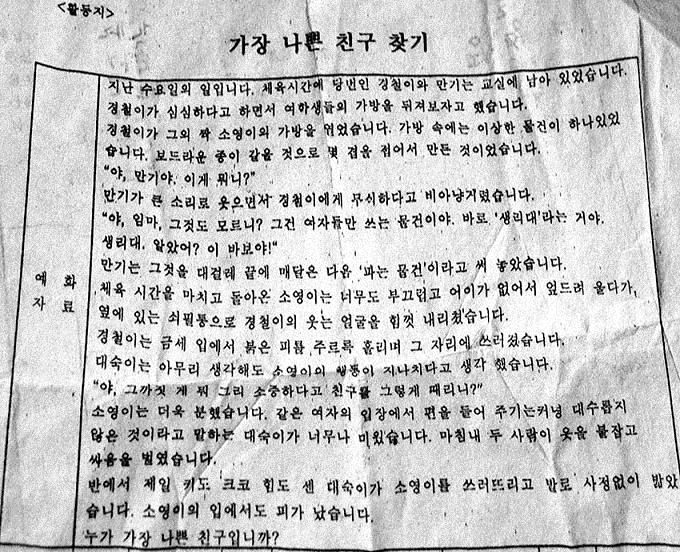 <활동지>
가장 나쁜 친구 찾기
지난 수요일의 일입니다. 체육시간에 당번인 경철이와 만기는 교실에 남아 있었습니다.
경철이가 심심하다고 하면서 여학생들의 가방을 뒤져보자고 했습니다.
경철이가 그의 짝 소영이의 가방을 열었습니다. 가방 속에는 이상한 물건이 하나있었
습니다. 보드라운 종이 같을 것으로 몇 겹을 접어서 만든 것이었습니다.
"야, 만기야. 이게 뭐니?"
만기가 큰 소리로 웃으면서 경철이에게 무식하다고 비아냥거렸습니다.
"야, 임마, 그것도 모르니? 그건 여자들만 쓰는 물건이야. 바로 '생리대'라는 거야.
생리대. 알았어? 이 바보야!"
만기는 그것을 대걸레 끝에 매달은 다음 '파는 물건'이라고 써 놓았습니다.
체육 시간을 마치고 돌아온 소영이는 너무도 부끄럽고 어이가 없어서 엎드려 울다가,
옆에 있는 쇠필통으로 경철이의 웃는 얼굴을 힘껏 내리쳤습니다.
경철이는 금세 입에서 붉은 피를 주르륵 흘리며 그 자리에 쓰러졌습니다.
대숙이는 아무리 생각해도 소영이의 행동이 지나치다고 생각 했습니다.
"야, 그까짓 게 뭐 그리 소중하다고 친구를 그렇게 때리니?"
소영이는 더욱 분했습니다. 같은 여자의 입장에서 편을 들어 주기는커녕 대수롭지
않은 것이라고 말하는 대숙이가 너무나 미웠습니다. 마침내 두 사람이 옷을 붙잡고
싸움을 벌였습니다.
반에서 제일 키도 크코 힘도 센 대숙이가 소영이를 쓰러뜨리고 발로 사정없이 밟았
습니다. 소영이의 입에서도 피가 났습니다.
누가 가장 나쁜 친구입니까?
예 화
자 료